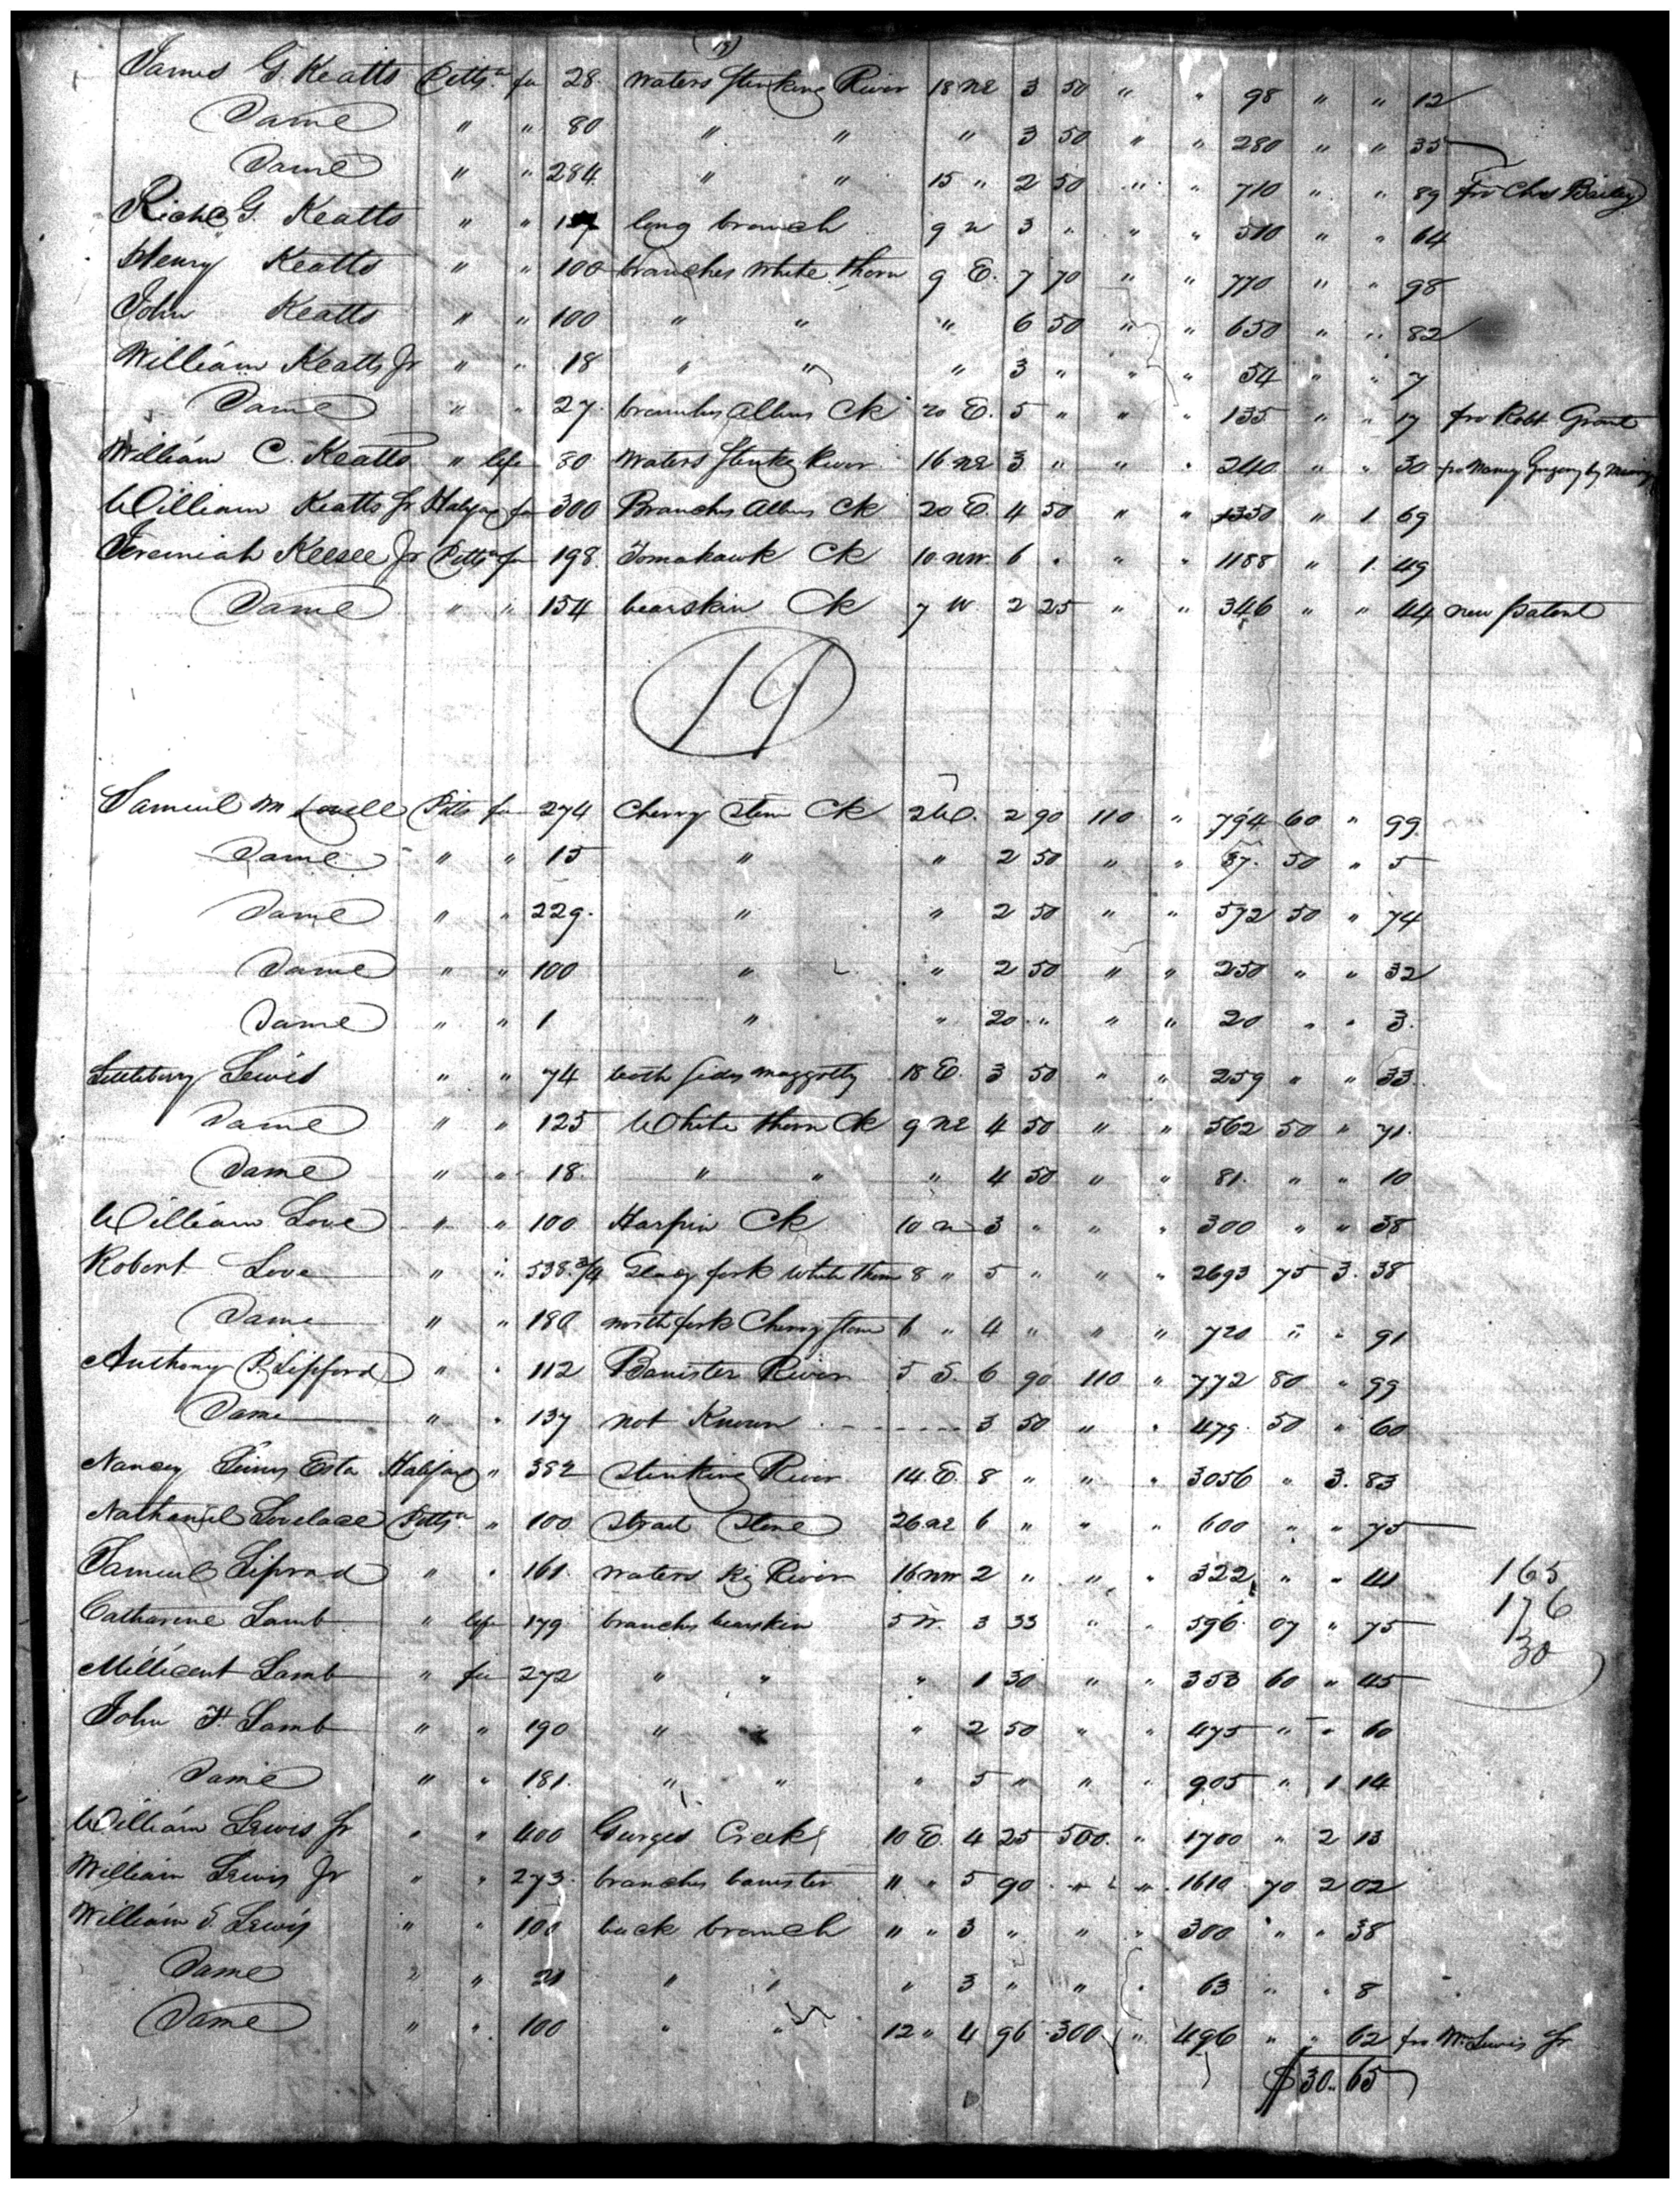 (19)
James G. Keatts Pittsa fee 28. Waters Stinking River 18 NE 3 50 " " 98 " " 12
Same " " 80 " " " 3 50 " " 280 " " 35
Same " " 284 " " 15 " 2 50 " " 710 " " 89 fro Chas Bailey
G. Keatts " " long branch 9 N 3 " " " 510 " " 64
Henry Keatts " " 100 branches White thorn 9 E. 7 70 " " 770 " " 98
John Keatts " " 100 " " " 6 50 " " 650 " " 82
William Keatts Jr " " 18 " " " 3 " " " 54 " " 7
Same " " 27 branches Allens Ck 20 E. 5 " " " 135 " " 17 fro Robt Grant
William C. Keatts " life 80 Waters Stinkg River 16 NE 3 " " " 240 " " 30 fro Nancy Gregory by
William Keatts Jr Halifax fee 300 Branches Allens Ck 20 E. 4 50 " " 1350 " 1. 69
Jeremiah Keesee Jr Pittsa fee 198. Tomahawk Ck 10 NW. 6 " " " 1188 " 1. 49
Same " " 154 bearskin Ck 7 W. 2 25 " " 346 " " 44 new patent
19
Samuel M Lovell Pitts fee 274 Cherry Stone Ck 2 W. 2 90 110 " 794 60 " 99
Same " " 15 " " 2 50 " " 37. 50 " 5
Same " " 229. " " 2 50 " " 572 50 " 74
Same " " 100 " " 2 50 " " 250 " " 32
Same " " 1 " " 20 " " " 20 " " 3.
Littlebery Lewis " " 74 both sides maggotty 18 E. 3 50 " " 259 " " 33.
Same " " 125 White thorn Ck 9 NE 4 50 " " 562 50 " 71.
Same " " 18. " " " 4 50 " " 81. " " 10
William Love " " 100 Harpin Ck 10 N 3 " " " 300 " " 38
Robert Love " " 538.3/4 fork White thorn 8 " 5 " " " 2693 75 3. 38
Same " " 180 north fork Cherry stone 6 " 4 " " " 720 " " 91
Anthony P. Lipford " " 112 Banister River 5 S. 6 90 110 " 772 80 " 99
Same " " 137 not Known 3 50 " " 479. 50 " 60
Nancy Esta Halifax " 382 Stinking River 14. E. 8 " " " 3056 " 3. 83
Nathaniel Lovelace Pittsa " 100 Strait Stone 26 NE 6 " " " 600 " " 75
Samuel Liprod " " 161. waters River 16 NW 2 " " " 322 " " 41 165
Catharine Lamb " life 179. branches bearskin 5 W. 3 33 " " 596. 07 " 75 176
Millicent Lamb " fee 272 " " " 1 30 " " 353 60 " 45 30
John H Lamb " " 190 " " " 2 50 " " 475 " " 60
Same " " 181. " " " 5 " " " 905 " 1 14
William Lewis Sr " " 400 Georges Creek 10 E. 4 25 500. " 1700 " 2 13
William Lewis Jr " " 273. branches banister " " 5 90 " " 1610 70 2 02
William S. Lewis " " 100 back branch " " 3 " " " 300 " " 38
Same " " 21 " " " 3 " " " 63 " " 8
Same " " 100 " " 12 " 4 96 300 " 496 " " 62 fro Wm Lewis Jr
$30.. 65